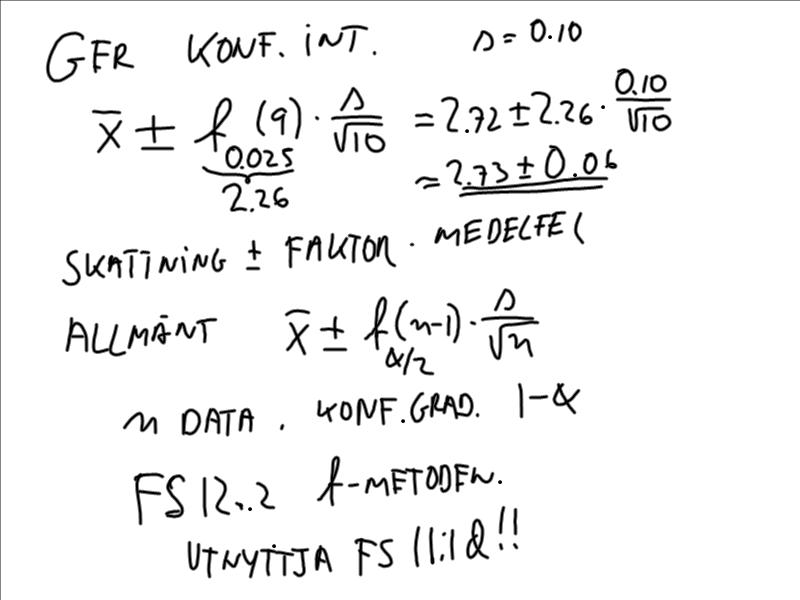 GER KONF. INT. s = 0.10
x̄ ± t₀.₀₂₅(9) · s/√10 = 2.72 ± 2.26 · 0.10/√10
2.26 ≈ 2.73 ± 0.06
SKATTNING ± FAKTOR · MEDELFEL
ALLMÄNT x̄ ± t_α/2(n-1) · s/√n
n DATA . KONF.GRAD. 1-α
FS 12.2 t-METODEN.
UTNYTTJA FS 11:1 &!!